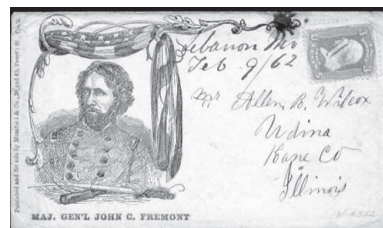 Lebanon Mo
Feb 9/62
Mr Allen R. Wilcox
Udina
Kane Co
Illinois
MAJ. GEN'L JOHN C. FREMONT